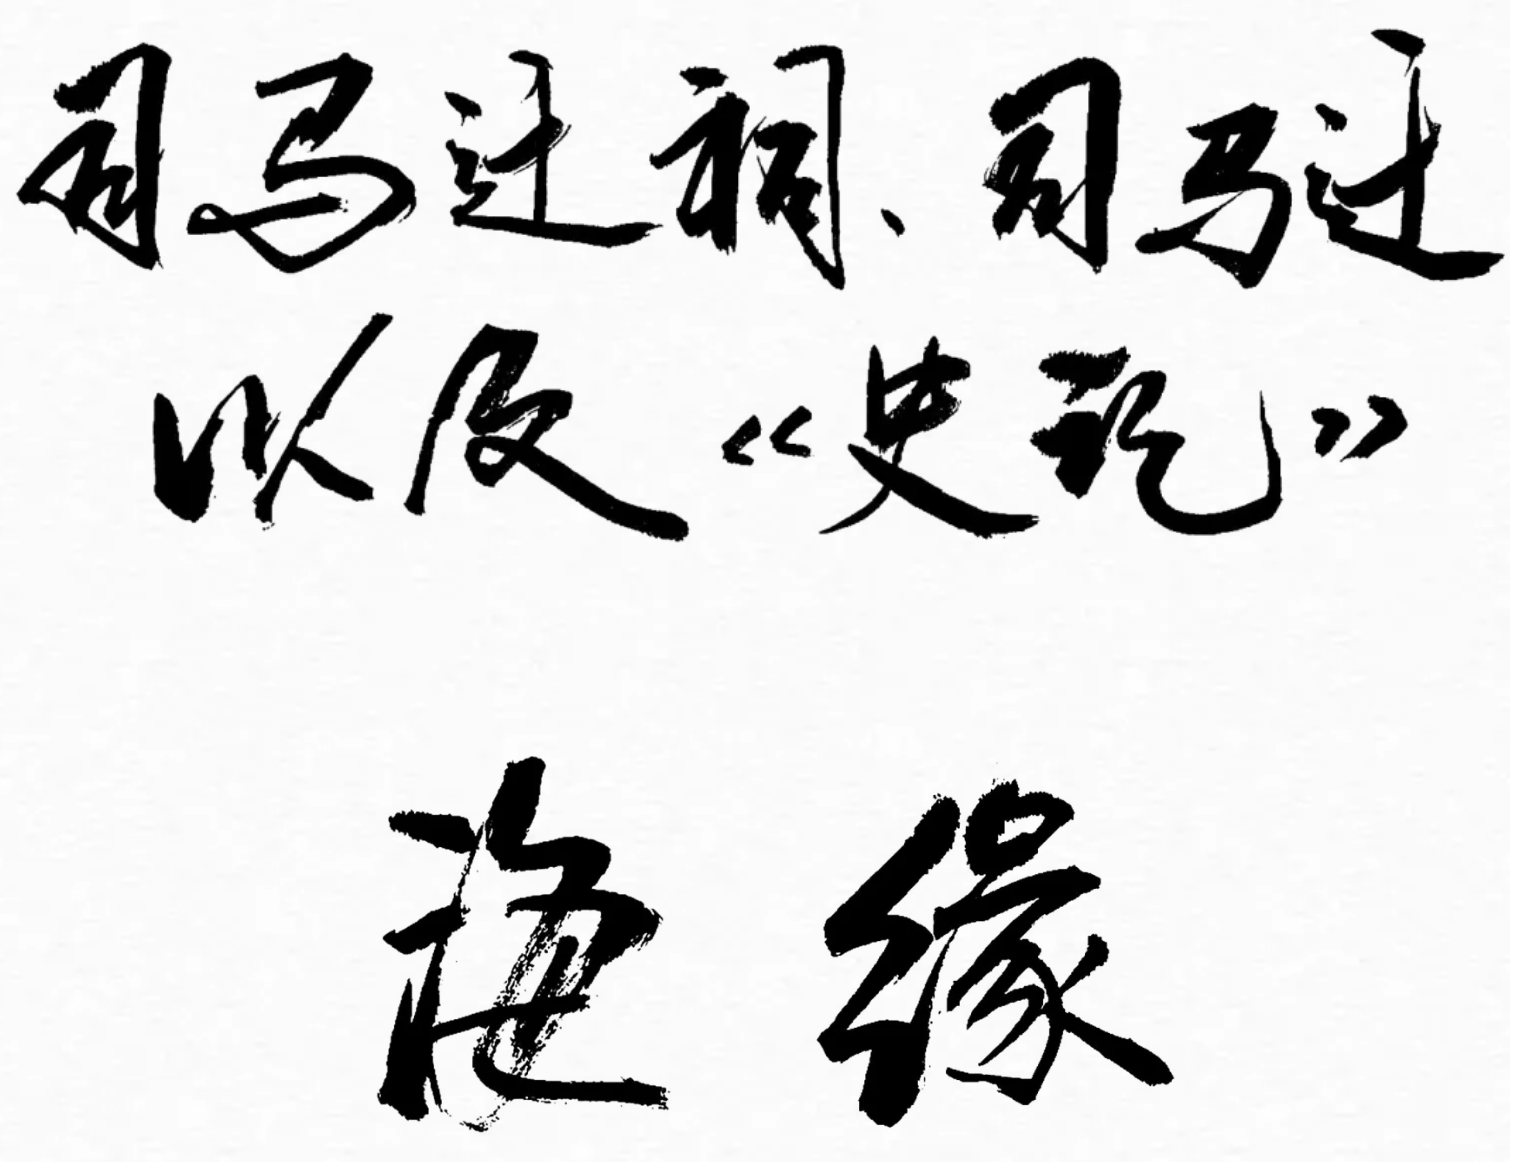 司马迁祠、司马迁
以及《史记》
海缘